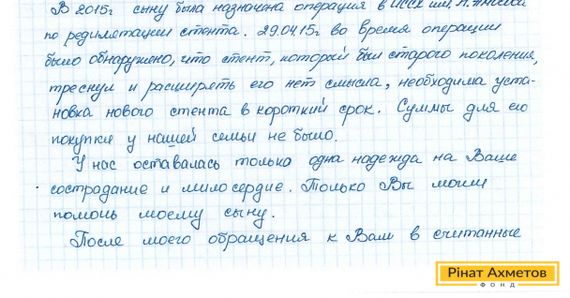 В 2015г сыну была назначена операция в ИССХ им. Н. Амосова
по редилятации стента. 29.04.15г во время операции
было обнаружено, что стент, который был старого поколения,
треснул и расширять его нет смысла, необходима уста-
новка нового стента в короткий срок. Суммы для его
покупки у нашей семьи не было.
У нас оставалась только одна надежда на Ваше
сострадание и милосердие. Только Вы могли
помочь моему сыну.
После моего обращения к Вам в считанные
Рінат Ахметов
ФОНД